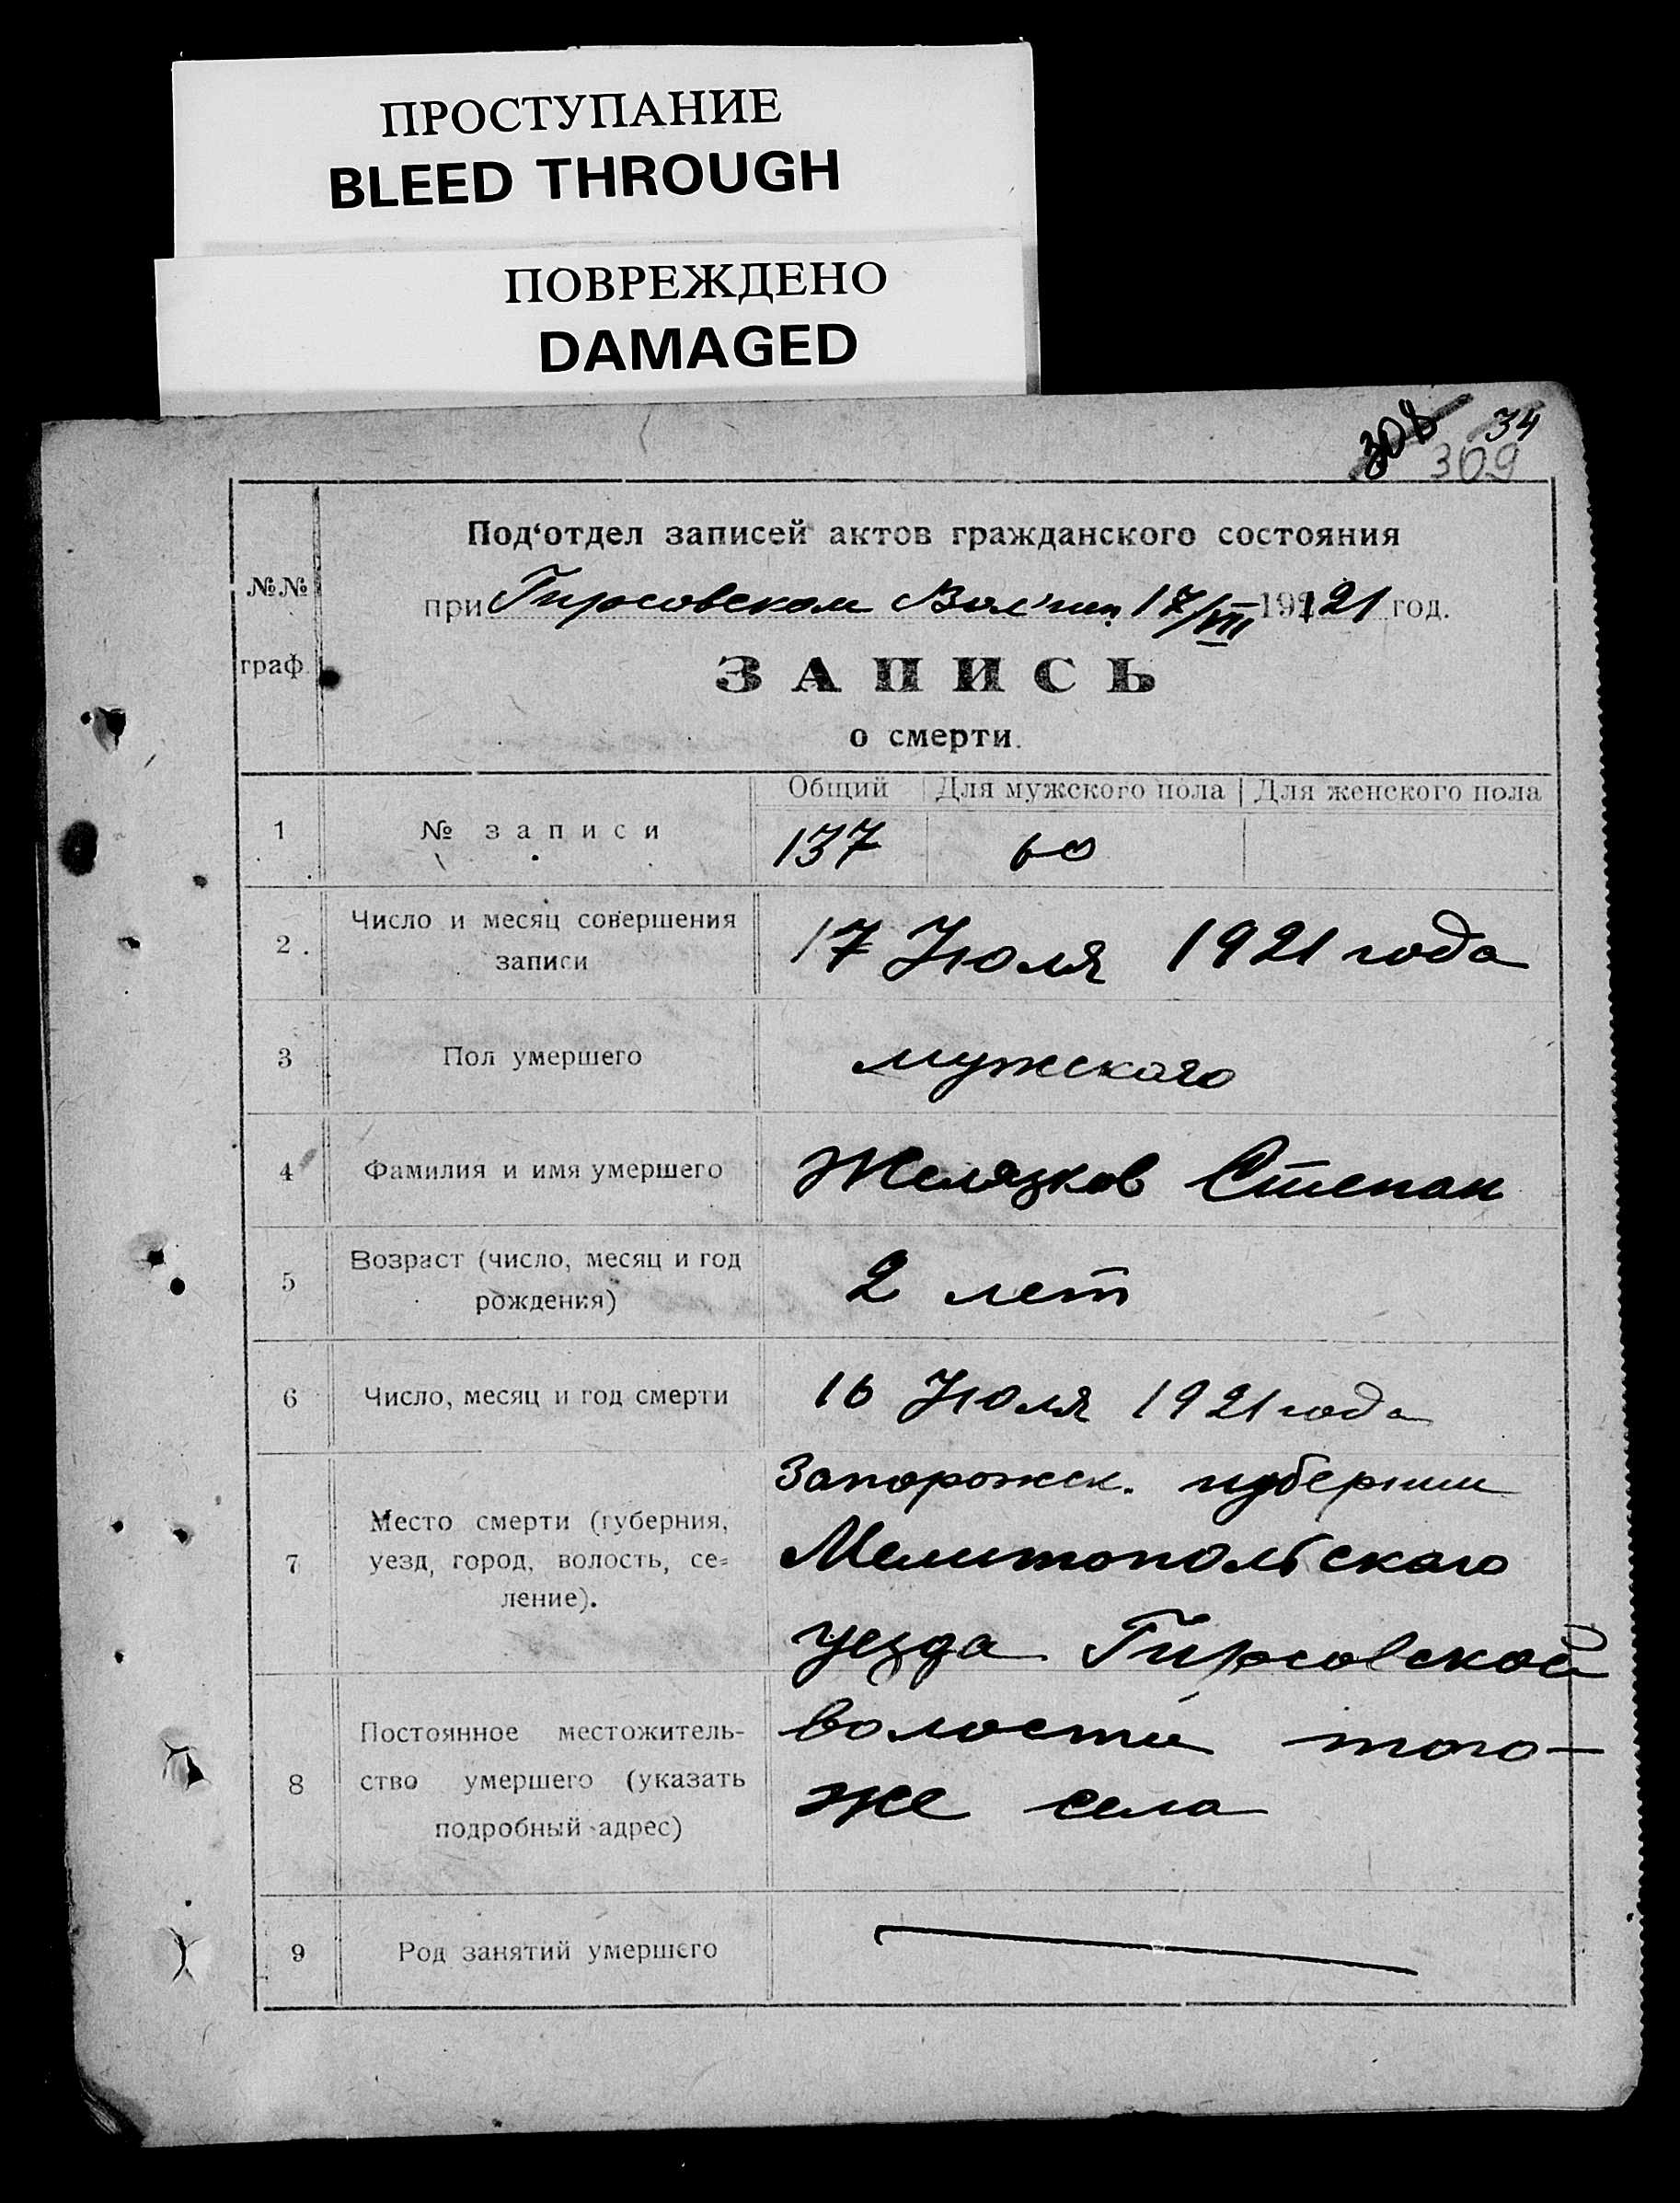 ПРОСТУПАНИЕ
BLEED THROUGH
ПОВРЕЖДЕНО
DAMAGED
308 34
309
№№
граф.
Под‘отдел записей актов гражданского состояния
при Гирсовском 17/VII 1921 год.
ЗАПИСЬ
о смерти.
Общий Для мужского пола Для женского пола
1 № записи 137 60
2. Число и месяц совершения
записи
17 Июля 1921 года
3 Пол умершего мужскаго
4 Фамилия и имя умершего Желязков Степан
5 Возраст (число, месяц и год
рождения)
2 лет
6 Число, месяц и год смерти 16 Июля 1921 года
7 Место смерти (губерния,
уезд, город, волость, се=
ление).
Запорожск. губернии
Мелитопольскаго
уезда Гирсовской
8 Постоянное местожитель-
ство умершего (указать
подробный адрес)
волости того-
же села
9 Род занятий умершего